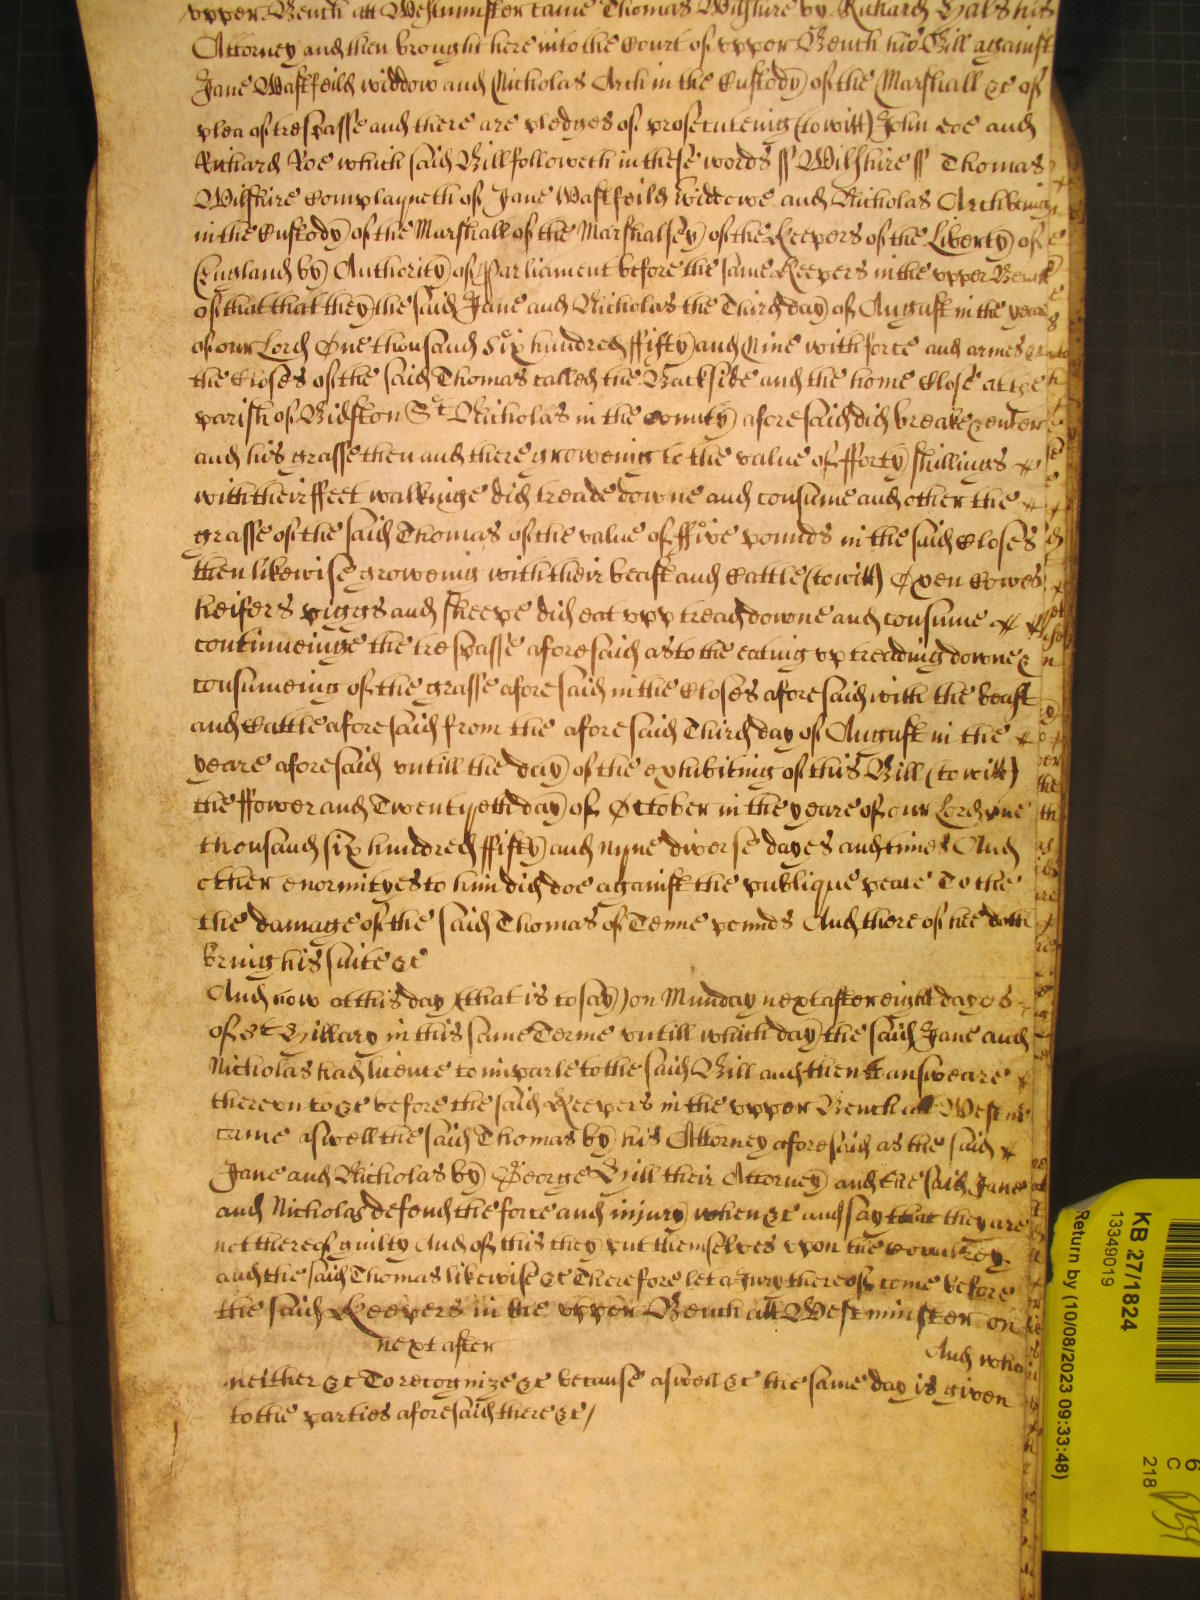 vpper Bench att Westminster came Thomas Wilshire by Richard Hals his
Attorney and then brought here into the Court of vpper Bench his Bill against
Jane Wastfeild widdow and Nicholas Arch in the Custody of the Marshall &c of
plea of trespasse and there are pledges of prosecuteinge (to witt) John Doe and
Richard Roe which said Bill followeth in these words ss Wilshire ss Thomas
Wilshire Complayneth of Jane Wastfeild widdowe and Nicholas Arch being
in the Custody of the Marshall of the Marshalsey of the Keepers of the Liberty of
England by Authority of Parliament before the same Keepers in the vpper Bench
of that that they the said Jane and Nicholas the Third day of August in the yeare
of our Lord One thousand six hundred ffifty and Nine with force and armes &c
the Closes of the said Thomas called the Backside and the home Close att the
parish of Bidston St Nicholas in the County aforesaid did breake & enter
and his grasse then and there groweing to the value of fforty shillings
with their ffeet walkinge did treade downe and consume and other the
grasse of the said Thomas of the value of ffive pounds in the said Closes
then likewise groweing with their beast and Cattle (to witt) Oxen Cowes
heifers piggs and sheepe did eat vpp tread downe and consume
continueinge the trespasse aforesaid as to the eating vp treading downe &
consumeing of the grasse aforesaid in the Closes aforesaid with the beast
and Cattle aforesaid from the aforesaid Third day of August in the
yeare aforesaid vntill the day of the exhibiting of this Bill (to witt)
the ffower and Twentyeth day of October in the yeare of our Lord one
thousand six hundred ffifty and nyne diverse dayes and times And
other enormityes to him did doe against the publique peace To the
the damage of the said Thomas of Tenne pounds And thereof hee doth
bring his suite &c
And now at this day (that is to say) on Munday next after eight dayes
of St Hillary in this same Terme vntill which day the said Jane and
Nicholas had licence to imparle to the said Bill and then to answeare
therevnto &c before the said Keepers in the vpper Bench att Westm
came aswell the said Thomas by his Attorney aforesaid as the said
Jane and Nicholas by George Hill their Attorney and the said Jane
and Nicholas defend the force and injury when &c and say that they are
not thereof guilty And of this they put themselves vpon the Countrey
and the said Thomas likewise &c Therefore let a Jury thereof come before
the said Keepers in the vpper Bench att Westminster on
next after And who
neither &c To recognize &c because aswell &c the same day is given
to the parties aforesaid there &c/
KB 27/1824
13349019
Return by (10/08/2023 09:33:48)
6
C
218